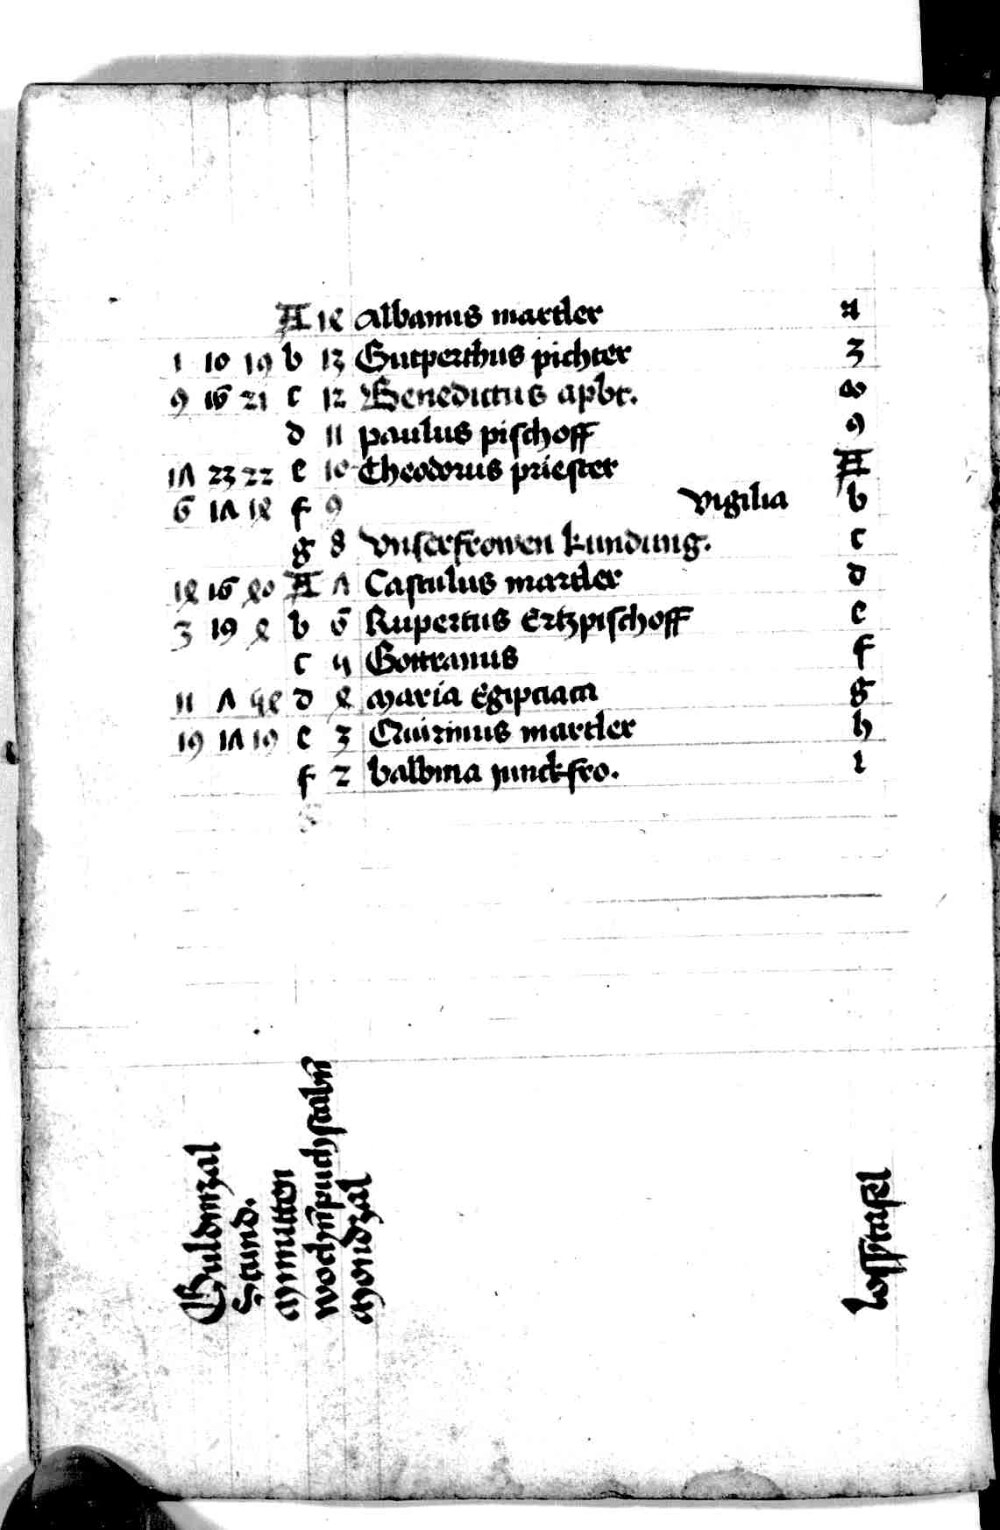 A 14 Albanus martler 2
1 10 19 b 13 Gutperthus pichter 3
9 16 21 c 12 Benedictus apbt. 8
d 11 paulus pischoff 9
17 23 22 e 10 Theodorus priester A
6 17 14 f 9 vigilia b
g 8 Vnserfrowen kundung. c
14 16 40 A 7 Castulus martler d
3 19 4 b 6 Rupertus Ertzpischoff e
c 5 Gottranus f
11 7 54 d 4 Maria Egipciaca g
19 17 19 e 3 Quirinus martler h
f 2 balbina junckfro. i
Guldinzal
Stund.
Minutten
wochnpuchstabn
Mondzal